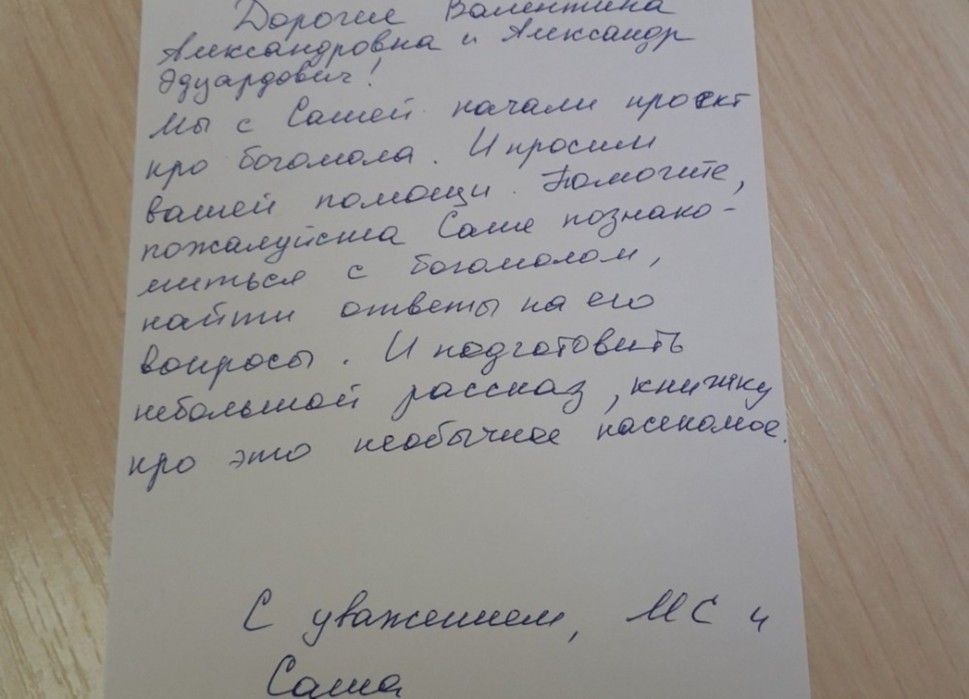 Дорогие Валентина
Александровна и Александр
Эдуардович!
Мы с Сашей начали проект
про богомола. И просим
вашей помощи. Помогите,
пожалуйста Саше познако-
миться с богомолом,
найти ответы на его
вопросы. И подготовить
небольшой рассказ, книжку
про это необычное насекомое.
С уважением, МС и
Саша